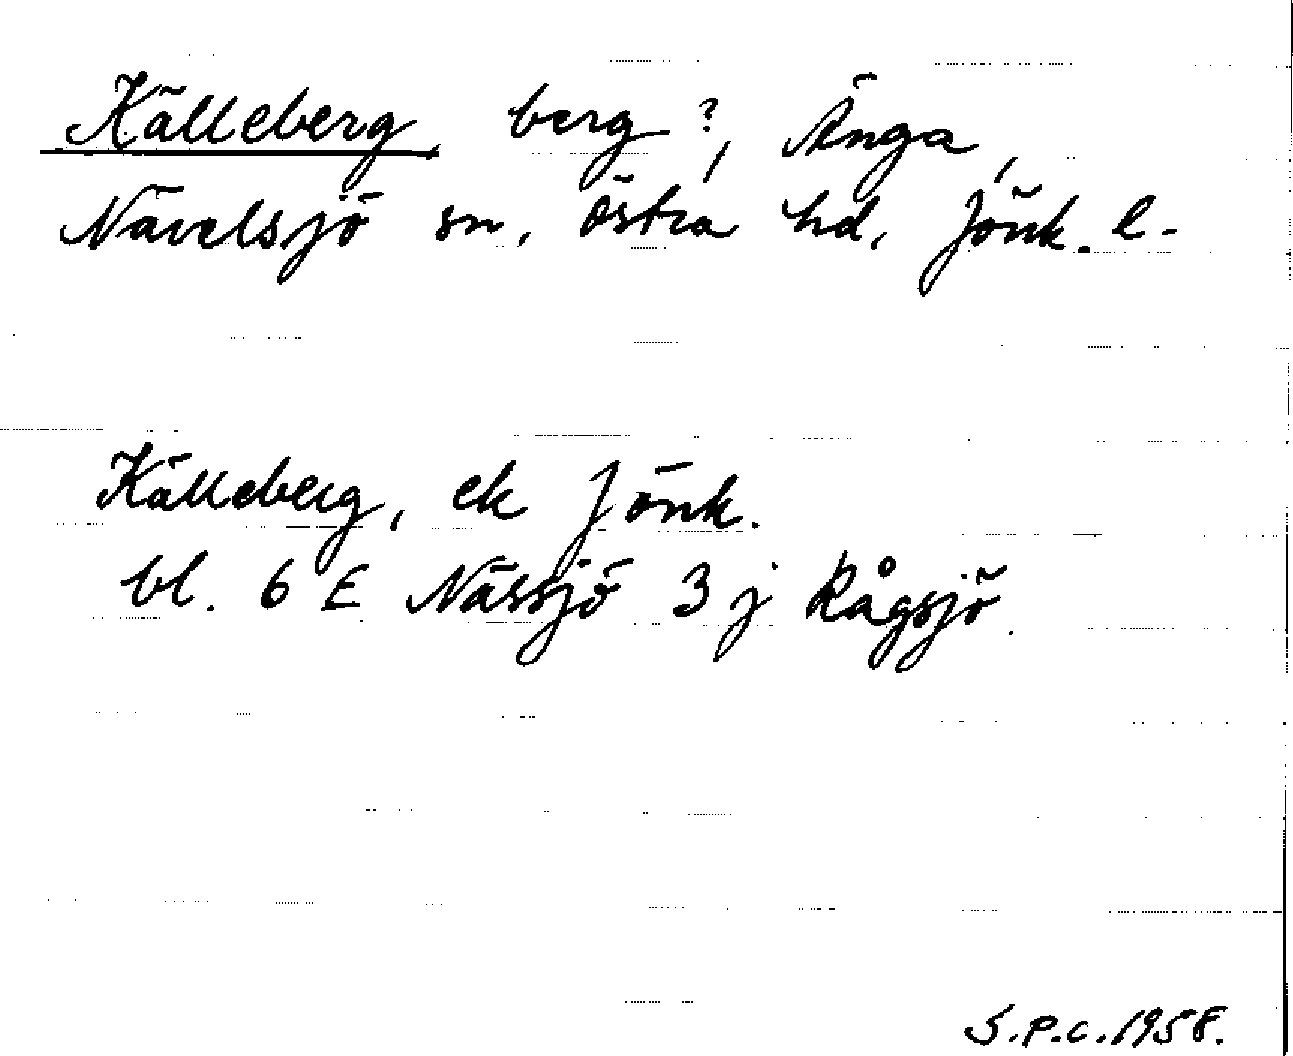 Källeberg berg?, Änga,
Nävelsjö sn, Östra hd, Jönk. l.
Källeberg, ek Jönk.
bl. 6 E Nässjö 3 j Rågsjö.
S.P.C. 1958.